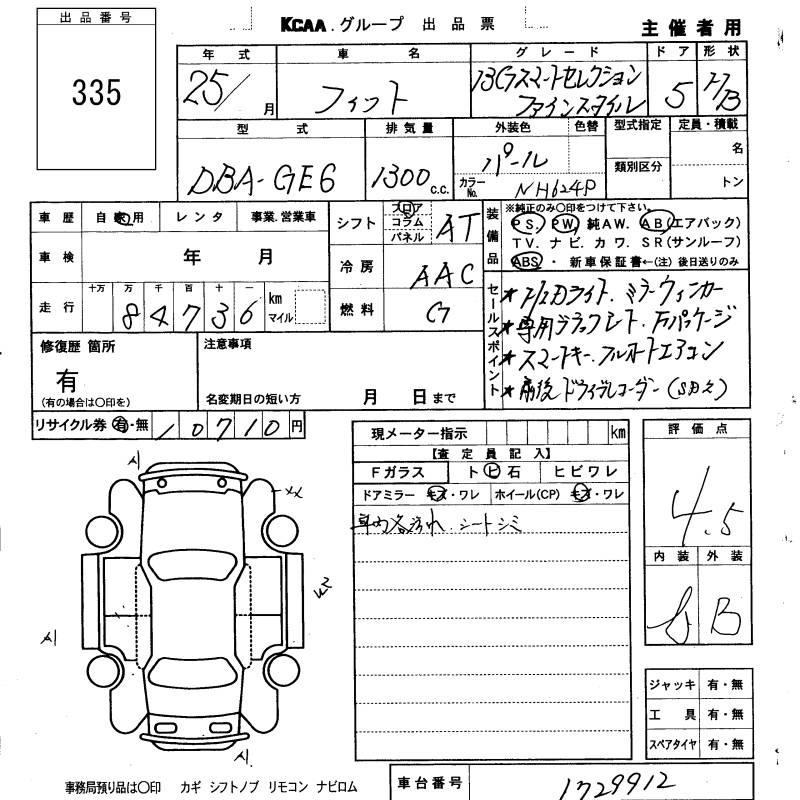 出品番号
335
KCAA.グループ 出品票
主催者用
年式 車名 グレード ドア 形状
25/ 月 フィット 13Gスマートセレクション ファインスタイル 5 H/B
型式 排気量 外装色 色替 型式指定 定員・積載
DBA-GE6 1300 c.c. パール 類別区分 名
カラーNo. NH624P トン
車歴 自家用 レンタ 事業.営業車
車検 年 月
走行 十万 万 千 百 十 一
84736 km マイル
シフト フロア コラム パネル AT
冷房 AAC
燃料 G
装備品
※純正のみ〇印をつけて下さい。
PS. PW. 純AW. AB(エアバック)
TV. ナビ. カワ. SR(サンルーフ)
ABS・ 新車保証書←(注) 後日送りのみ
セールスポイント
★HIDライト.ミラーウィンカー
★専用フラッフレト.Fパッケージ
★スマートキー.フルオートエアコン
★前後ドライブレコーダー(SD欠)
修復歴 箇所
有
(有の場合は〇印を)
注意事項
名変期日の短い方 月 日まで
リサイクル券 有・無 10710円
現メーター指示 km
【査定員記入】
Fガラス ト ヒ 石 ヒビワレ
ドアミラー キズ・ワレ ホイール(CP) キズ・ワレ
車内各汚れ.シートシミ
評価点
4.5
内装 外装
b B
A1
XX
W2
A1
A1
ジャッキ 有・無
工具 有・無
スペアタイヤ 有・無
事務局預り品は〇印 カギ シフトノブ リモコン ナビロム
車台番号 1729912